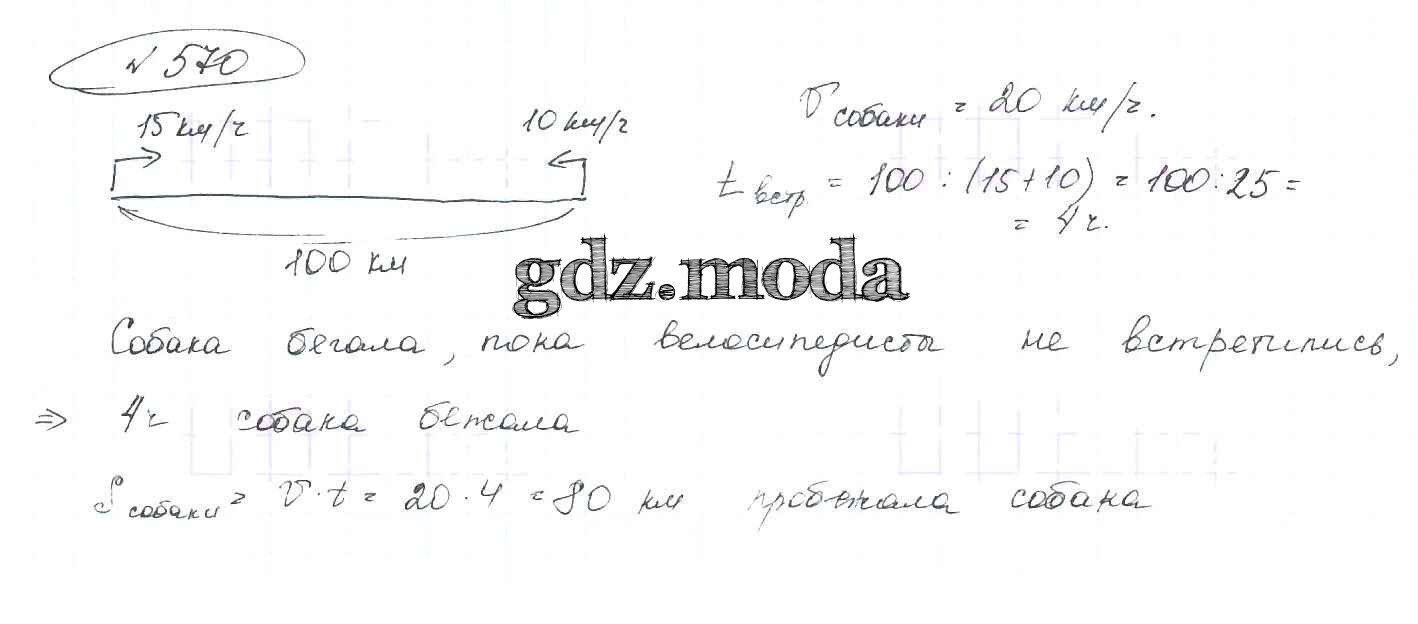 № 570
15 км/ч
10 км/ч
100 км
V собаки = 20 км/ч.
t встр. = 100 : (15+10) = 100:25 =
= 4 ч.
gdz.moda
Собака бегала, пока велосипедисты не встретились,
⇒ 4ч собака бежала
S собаки = V·t = 20·4 = 80 км пробежала собака